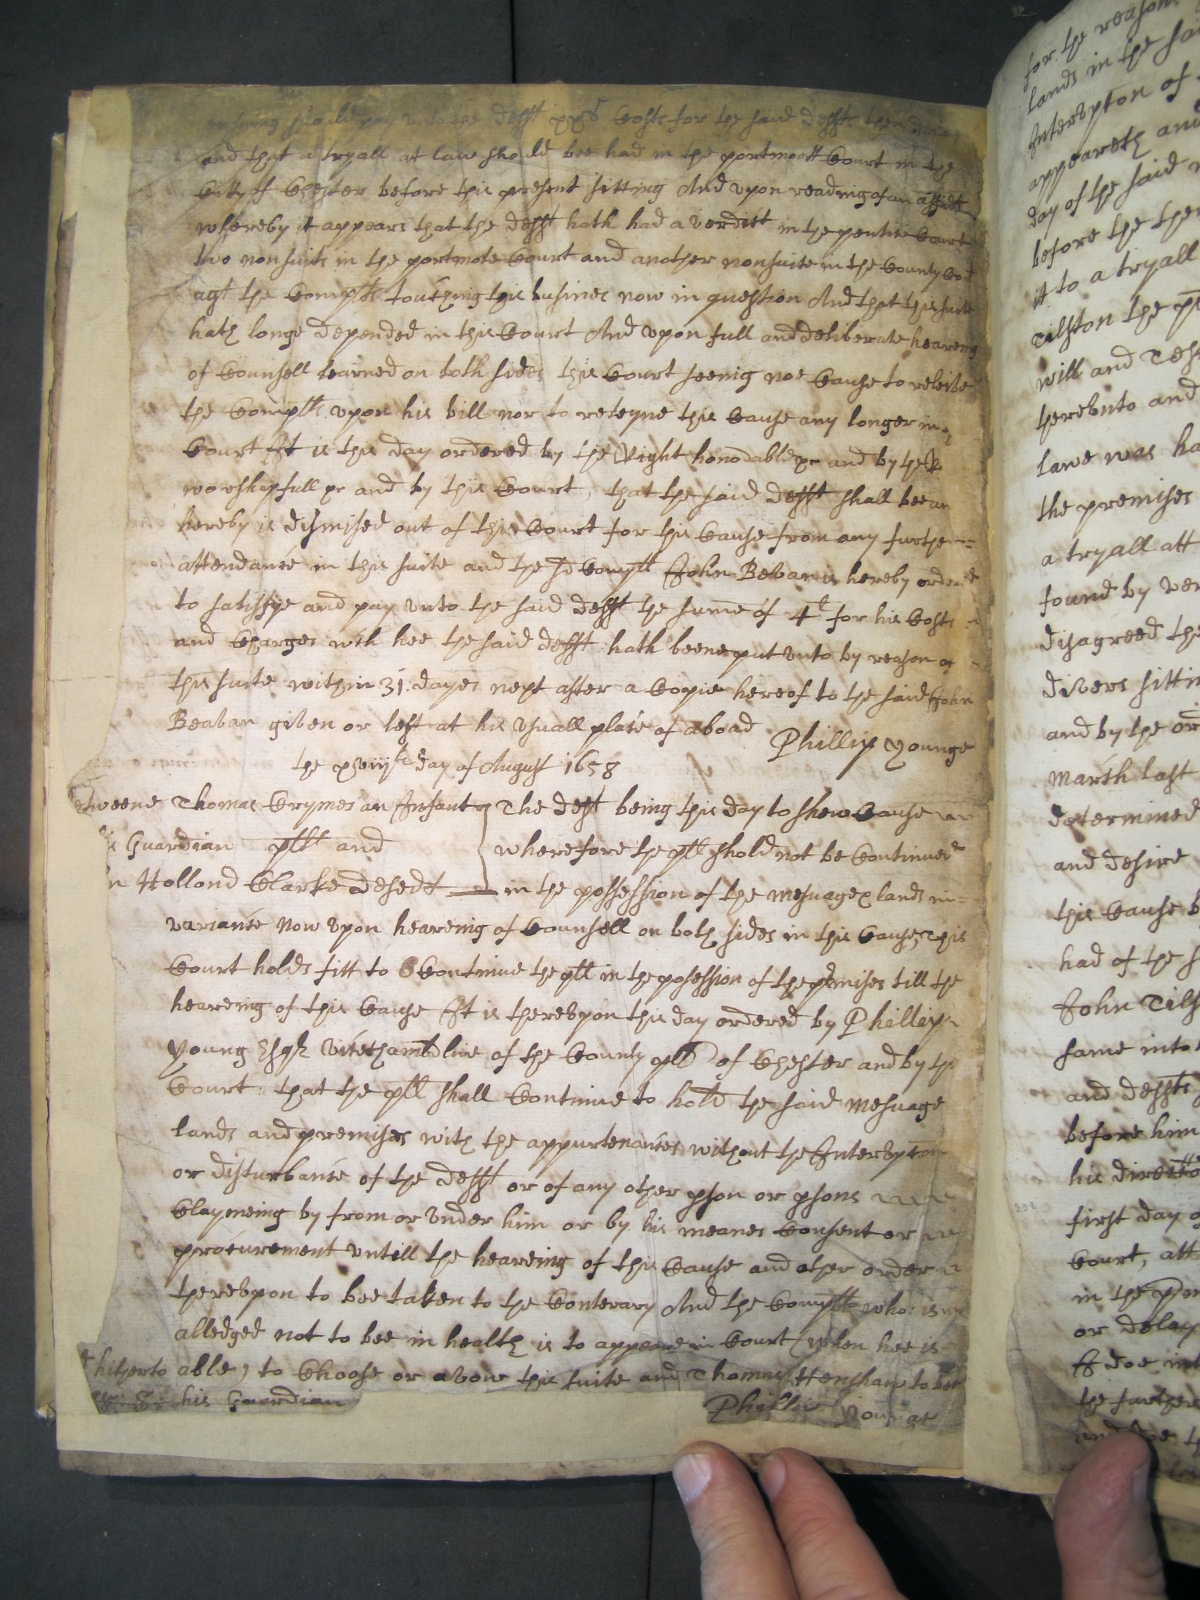 ensuing should pay unto the defft xxs Costs for the said deffts then
and that a tryall at law should bee had in the portmoott Court in the
Citty of Chester before this present sitting And upon reading of an affidt
whereby it appears that the defft hath had a verditt in the pentice Court
two nonsuits in the portmote Court and another nonsuite in the County
agt the Complt touching this busines now in question And that this suite
hath longe depended in this Court And upon full and deliberate heareng
of Counsell learned on both sides this Court seeing noe Cause to releive
the Complt upon his bill nor to reteyne this Cause any longer in
Court It is this day ordered by the Right honorable and by the
worshipfull and by this Court, that the said defft shall bee an
hereby is dismised out of this Court for this Cause from any further
attendance in this suite and the sd Complt John Bevan is hereby ordered
to satisfye and pay unto the said defft the sume of 4l for his Costs
and Charges wch hee the said defft hath beene put unto by reason of
this suite within 31: dayes next after a Copie hereof to the said John
Beavan given or left at his usuall place of aboad Phillip Younge
the xviijth day of August 1658
etweene Thomas Crymes an Infant The deft being this day to shew Cause
Guardian pllt and wherefore the pll shold not be Continued
n Hollond Clarke defedt in the possession of the mesuage lands in
variance Now upon heareing of Counsell on both sides in this Cause, This
Court holds fitt to Continue the pll in the posession of the pmises till the
heareing of this Cause It is thereupon this day ordered by Phillip
Young Esqr of the County of Chester and by the
Court that the pll shall Continue to hold the said mesuage
lands and premises with the appurtenances without the Interupton
or disturbance of the defft or of any other pson or psons
Claymeing by from or under him or by his meanes Consent or
procurement untill the heareing of this Cause and other order
thereupon to bee taken to the Contrary And the Complt who is
alledged not to bee in health is to appeare in Court (when hee is
hitherto able) to Choose or avow this suite and Thomas Henshaw to bee
his Guardian Phillip Younge
for the reasons
lands in the said
Interupton of
appeareth and
day of the said
before the then
it to a tryall
Tilston the
will and
thereunto and
lawe was ha
the premises
a tryall att
found by ver
disagreed the
divers sittin
and by the
March last
determined
and desire
this Cause b
had of the s
John Tils
same into
and deffts
before him
his direcco
first day o
Court, att
in the prem
or delay
I doe int
the further